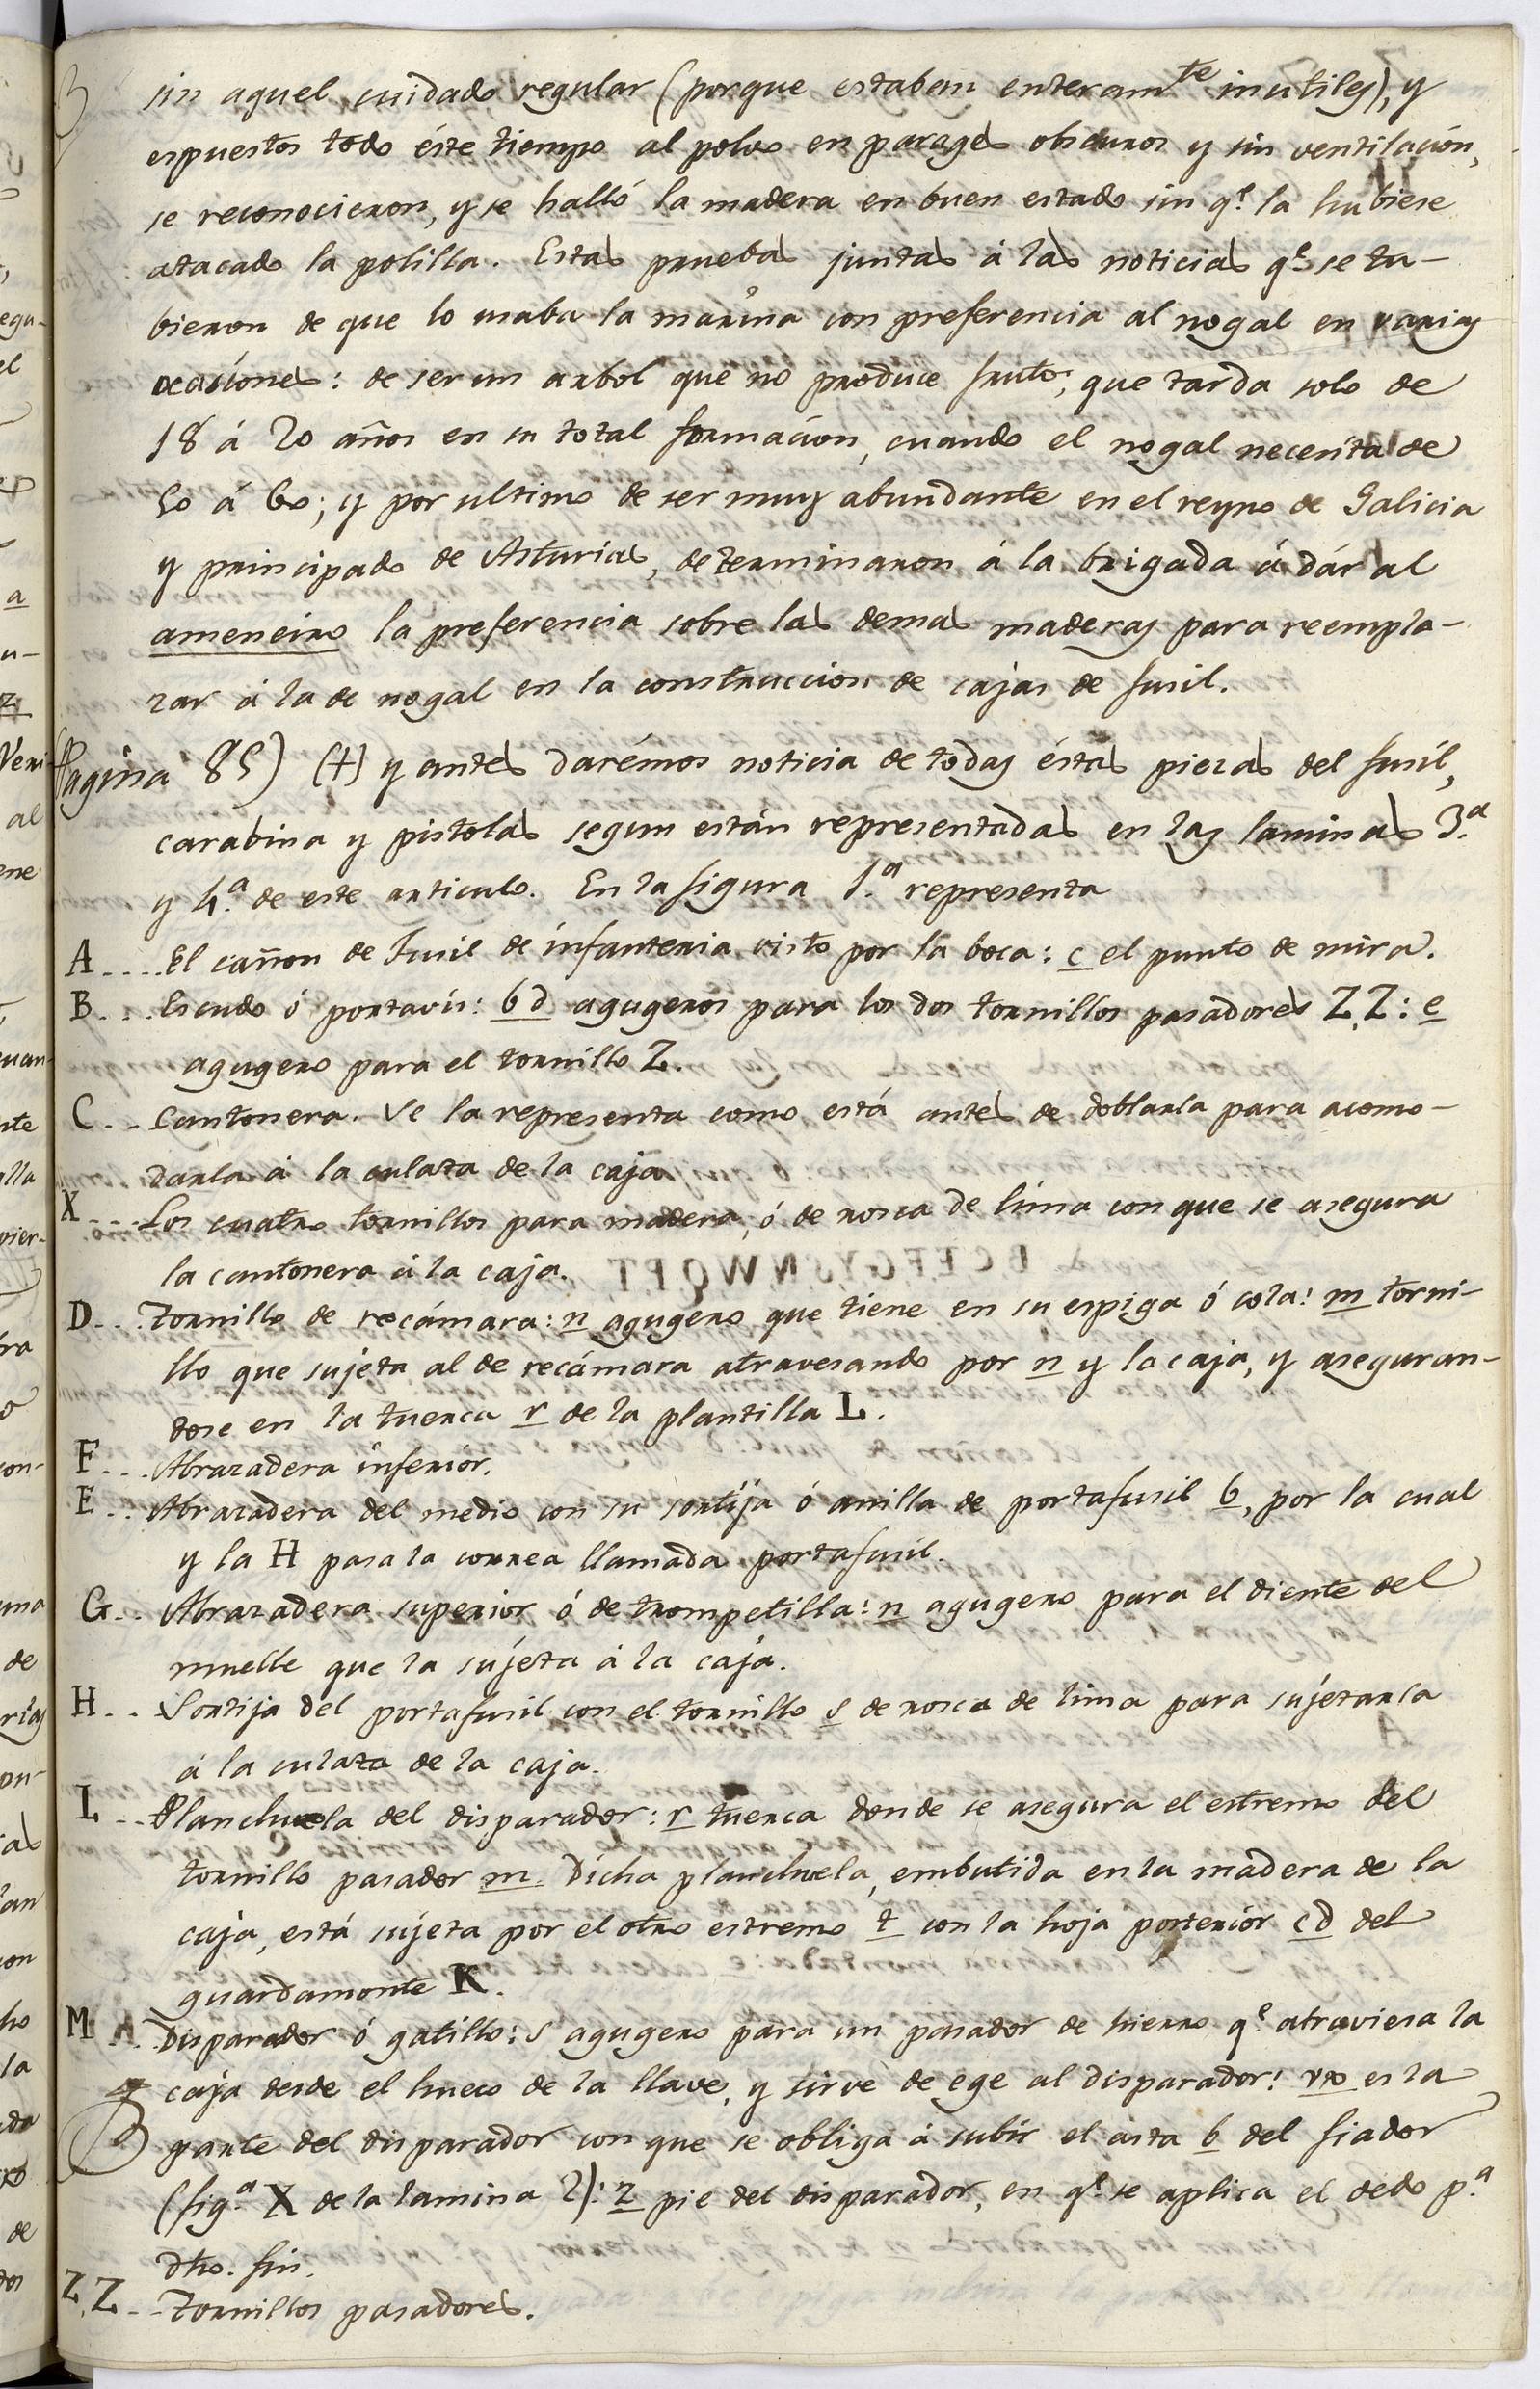 sin aquel cuidado regular (porque estaban enteramte inutiles), y
espuestos todo éste tiempo al polvo en parages obscuros y sin ventilación,
se reconocieron, y se halló la madera en buen estado sin qe. la hubiese
atacado la polilla. Estas pruebas juntas á las noticias qe. se tu-
bieron de que lo usaba la marina con preferencia al nogal en varias
ocasiones: de ser un arbol que no produce fruto, que tarda solo de
18 á 20 años en su total formacion, cuando el nogal necesita de
50 á 60; y por ultimo de ser muy abundante en el reyno de Galicia
y principado de Asturias, determinaron á la brigada á dár al
ameneiro la preferencia sobre las demas maderas para reempla-
zar á la de nogal en la construccion de cajas de fusil.
(Pagina 85) (+) y antes darémos noticia de todas éstas piezas del fusil,
carabina y pistolas segun están representadas en las laminas 3.a
y 4.a de este articulo. En la figura 1.a representa
A.... El cañon de Fusil de infanteria visto por la boca: c el punto de mira.
B... Escudo ó portavis: b d agugeros para los dos tornillos pasadores Z,Z: e
agugero para el tornillo Z.
C.. Cantonera. Se la representa como está antes de doblarla para acomo-
darla á la culata de la caja
X.... Los cuatro tornillos para madera, ó de rosca de lima con que se asegura
la cantonera á la caja.
D... Tornillo de recámara: n agugero que tiene en su espiga ó cola: m torni-
llo que sujeta al de recámara atravesando por n y la caja, y aseguran-
dose en la tuerca r de la plantilla L.
F... Abrazadera inferior.
E.. Abrazadera del medio con su sortija ó anilla de portafusil b, por la cual
y la H pasa la correa llamada portafusil.
G.. Abrazadera superior ó de trompetilla: n agugero para el diente del
muelle que la sujeta á la caja.
H.. Sortija del portafusil con el tornillo s de rosca de lima para sujetarla
á la culata de la caja.
L... Planchuela del disparador: r tuerca donde se asegura el estremo del
tornillo pasador m. Dicha planchuela, embutida en la madera de la
caja, está sujeta por el otro estremo t con la hoja posterior c d del
guardamonte K.
M.. Disparador ó gatillo: s agugero para un pasador de hierro qe. atraviesa la
caja desde el hueco de la llave, y sirve de ege al disparador: es la
parte del disparador con que se obliga á subir el asta b del fiador
(fig.a X de la lamina 2): z pie del disparador, en qe. se aplica el dedo p.a
dho. fin.
Z,Z.. Tornillos pasadores.